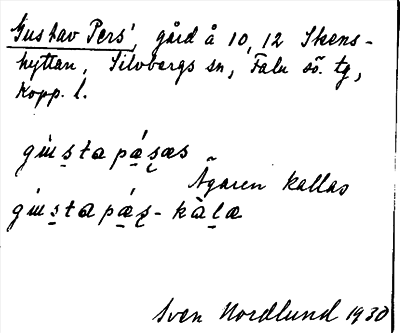 Gustav Pers', gård å 10, 12 Skens-
hyttan, Silvbergs sn, Falu sö. tg,
Kopp. l.
gɯ́s̱tapá̱s̨æs
Ägaren kallas
gɯ́s̱tapá̱s̨-kàḻa
Sven Nordlund 1930